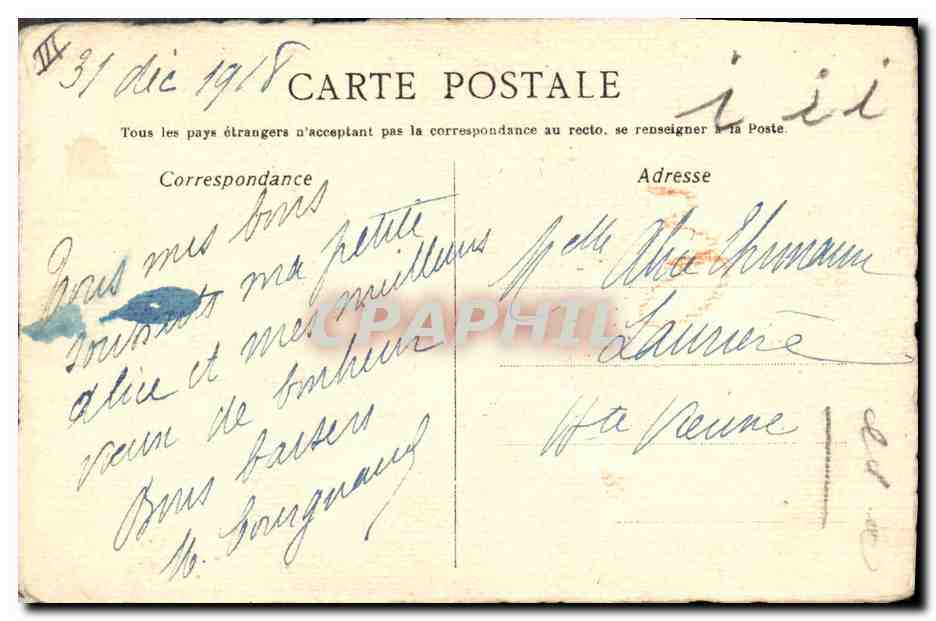 III
31 déc 1918
CARTE POSTALE
i i i
Tous les pays étrangers n'acceptent pas la correspondance au recto, se renseigner à la Poste.
Correspondance
Tous mes bons
souhaits ma petite
alice et mes meilleurs
vœux de bonheur
Bons baisers
Adresse
Melle Alice
Laurière
Hte Vienne
CPAPHIL